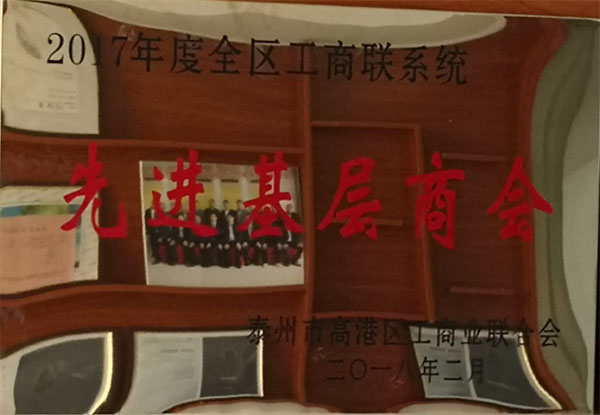 2017年度全区工商联系统
先进基层商会
泰州市高港区工商业联合会
二〇一八年二月